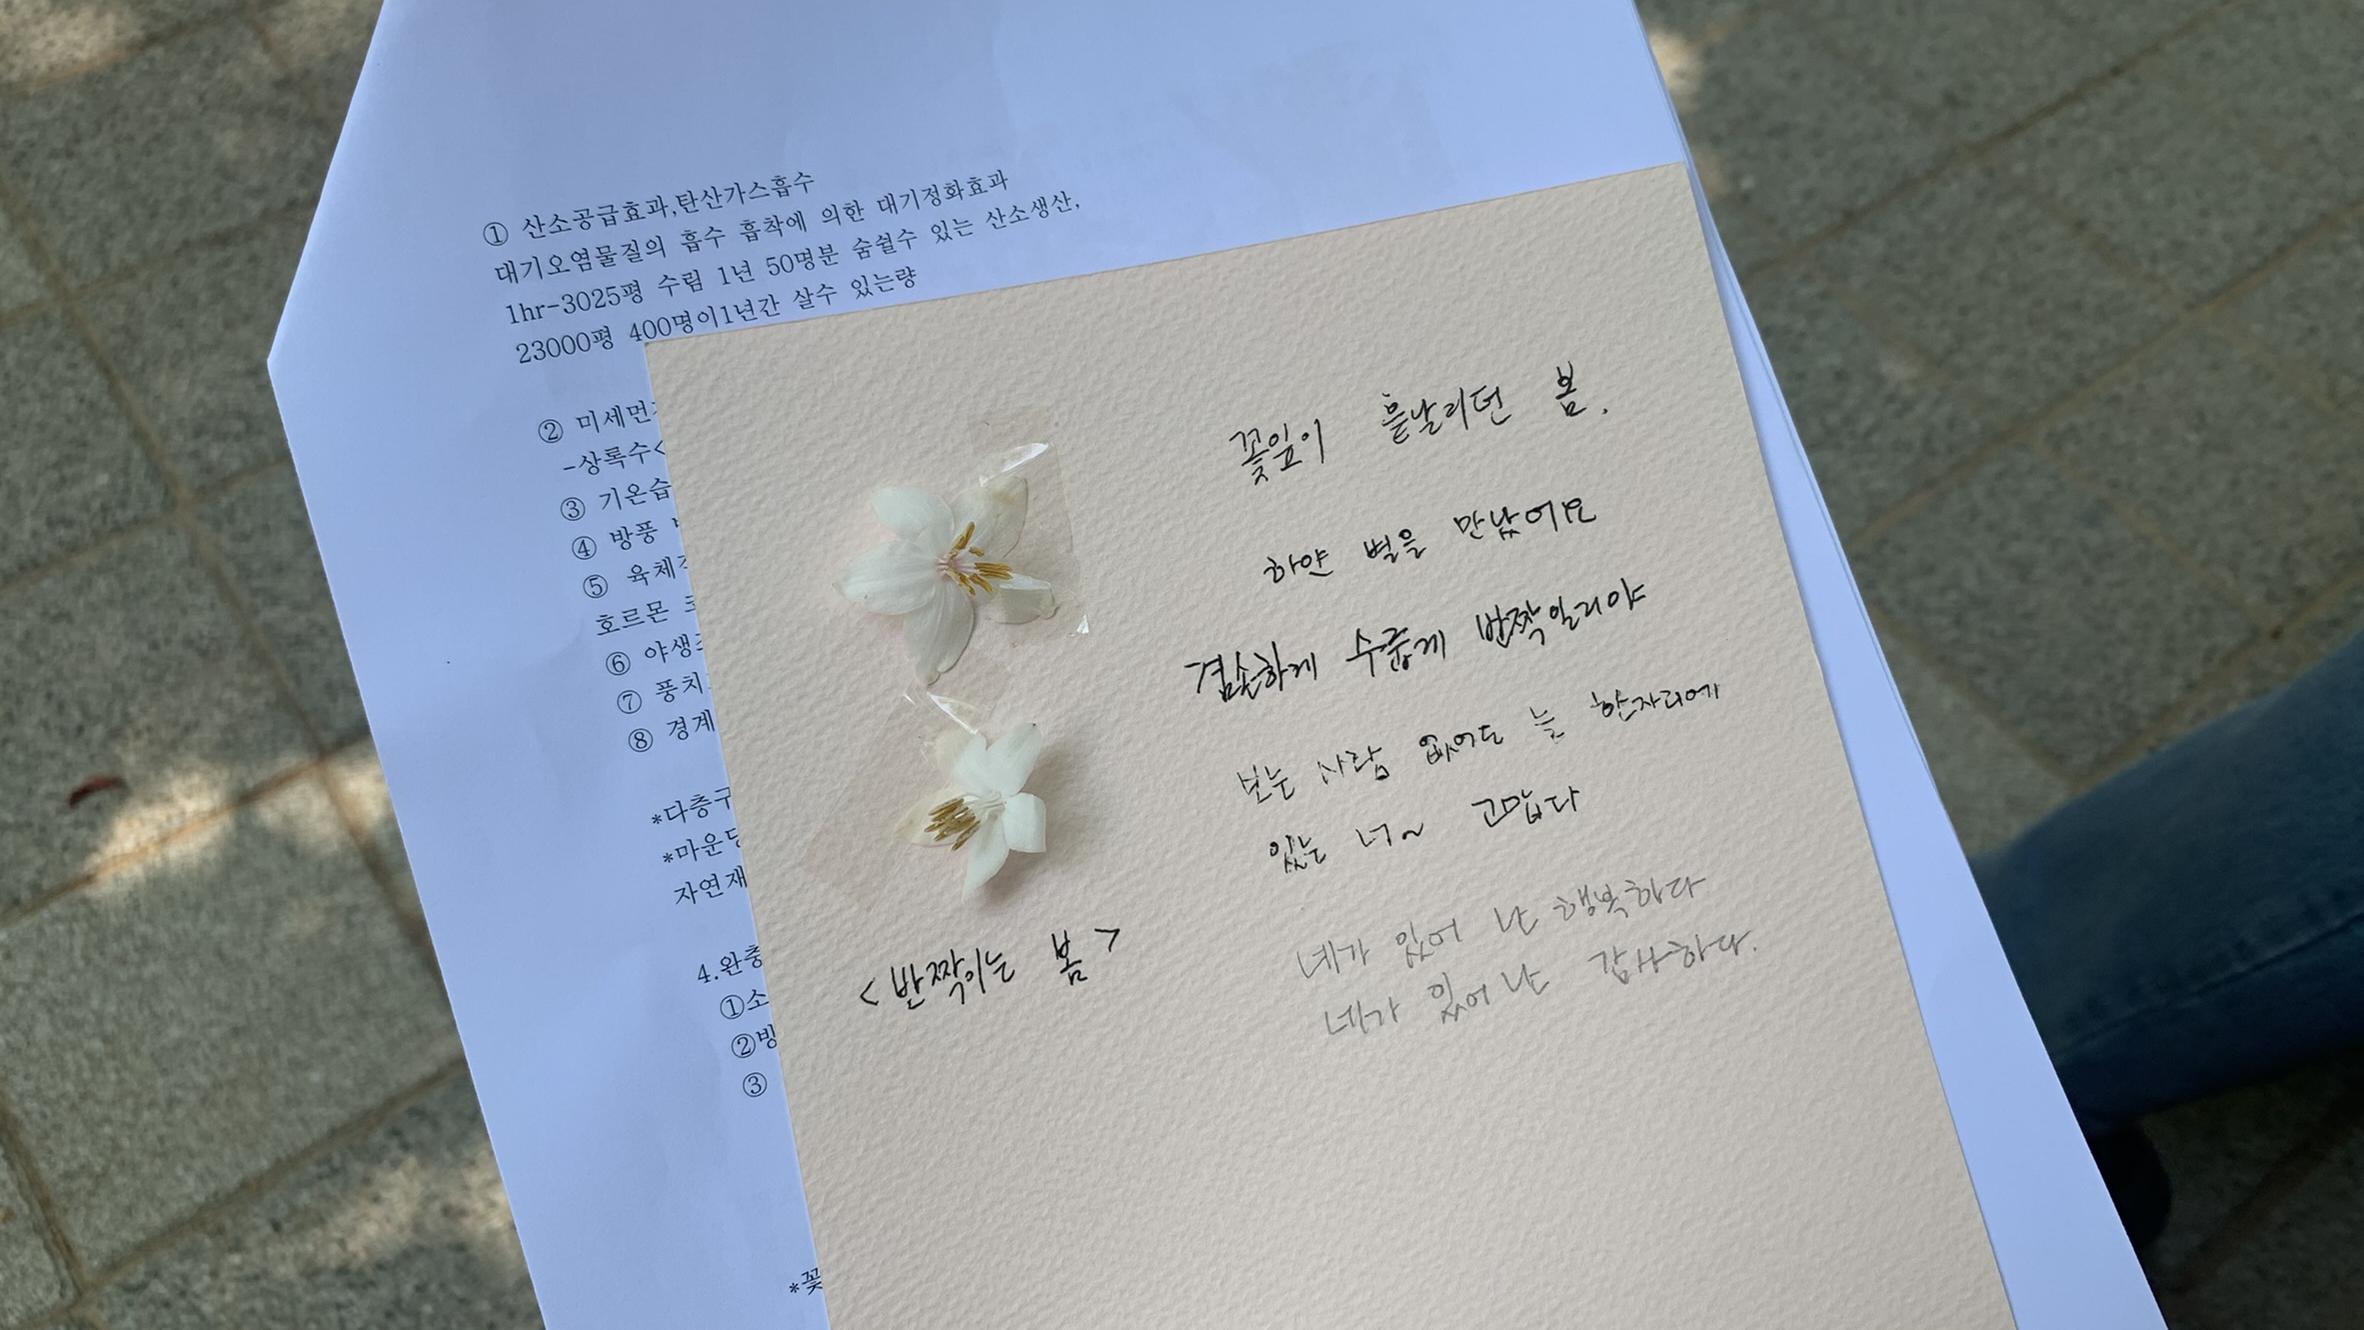 ① 산소공급효과,탄산가스흡수
대기오염물질의 흡수 흡착에 의한 대기정화효과
1hr-3025평 수림 1년 50명분 숨쉴수 있는 산소생산,
23000평 400명이1년간 살수 있는량
② 미세먼
-상록수<
③ 기온습
④ 방풍
⑤ 육체
호르몬
⑥ 야생
⑦ 풍치
⑧ 경계
*다층구
*마운딩
자연재
4.완충
①소
②방
③
*꽃
꽃잎이 흩날리던 봄.
하얀 별을 만났어요
겸손하게 수줍게 반짝일리야
보는 사람 없어도 늘 한자리에
있는 너~ 고맙다
네가 있어 난 행복하다
네가 있어 난 감사하다.
<반짝이는 봄>